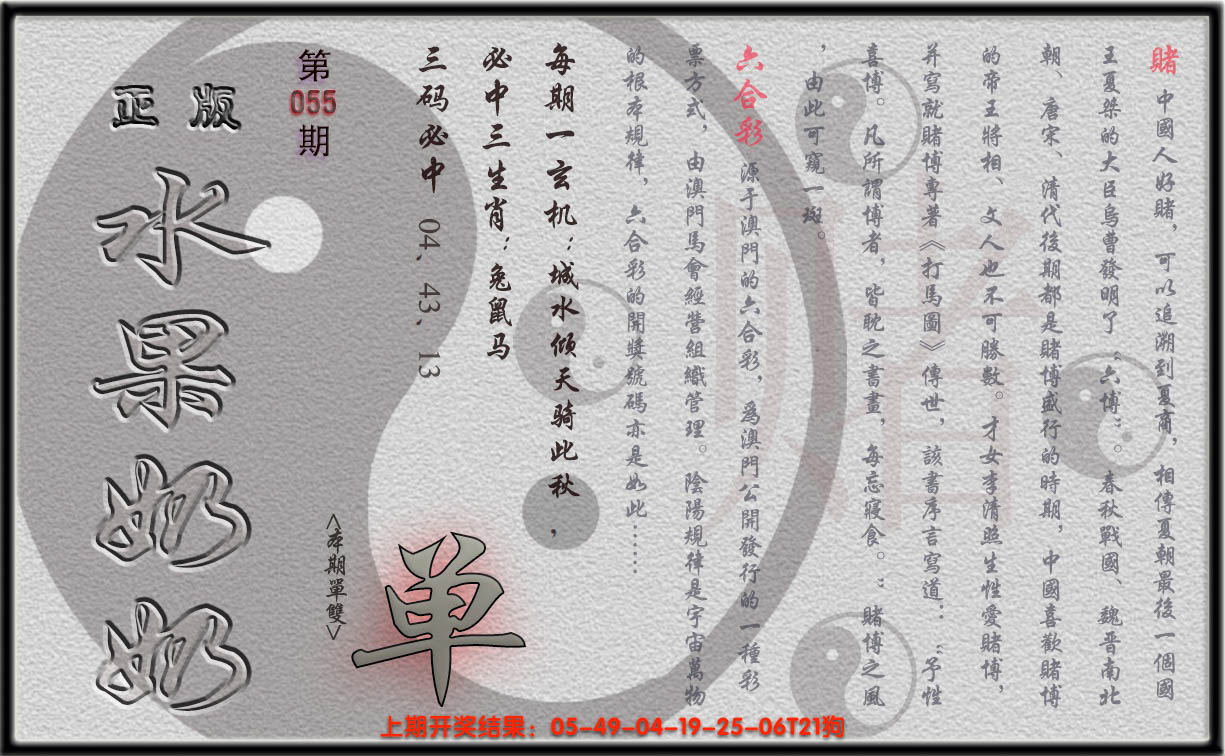 賭 中國人好賭，可以追溯到夏商，相傳夏朝最後一個國
王夏桀的大臣烏曹發明了“六博”。春秋戰國、魏晋南北
朝、唐宋、清代後期都是賭博盛行的時期，中國喜歡賭博
的帝王將相、文人也不可勝數。才女李清照生性愛賭博，
并寫就賭博專著《打馬圖》傳世，該書序言寫道：“予性
喜博。凡所謂博者，皆耽之書畫，每忘寢食。”賭博之風
，由此可窺一斑。
六合彩 源于澳門的六合彩，爲澳門公開發行的一種彩
票方式，由澳門馬會經營組織管理。陰陽規律是宇宙萬物
的根本規律，六合彩的開獎號碼亦是如此……
每期一玄机：城水倾天骑此秋，
必中三生肖：兔鼠马
三码必中 04、43、13
第055期
<本期單雙>
单
正版
水果奶奶
赌
上期开奖结果：05-49-04-19-25-06T21狗